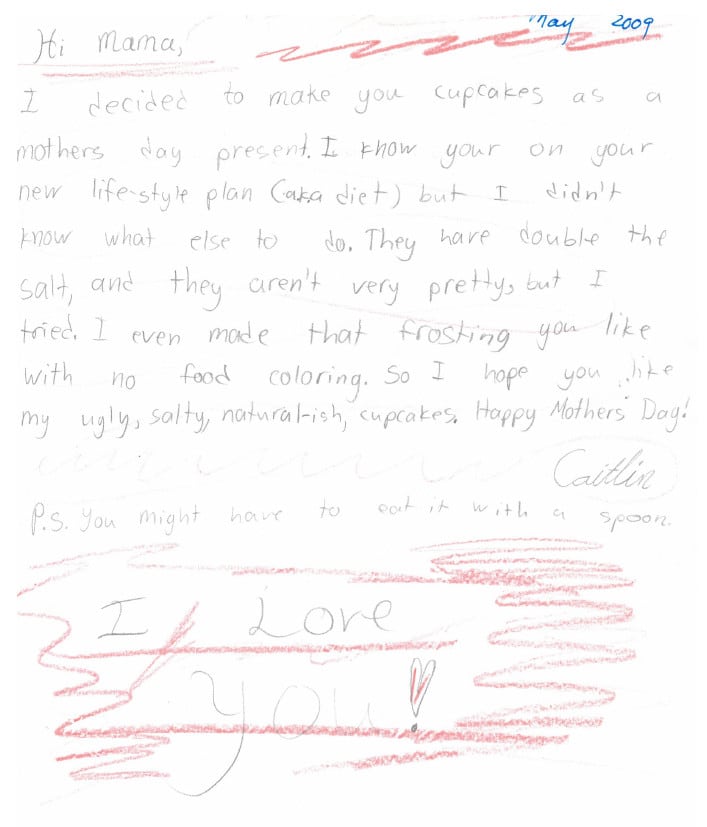 May 2009
Hi Mama,
I decided to make you cupcakes as a
mothers day present. I know your on your
new life-style plan (aka diet) but I didn't
know what else to do. They have double the
salt, and they aren't very pretty, but I
tried. I even made that frosting you like
with no food coloring. So I hope you like
my ugly, salty, natural-ish, cupcakes. Happy Mothers' Day!
Caitlin
P.S. You might have to eat it with a spoon.
I Love
You!